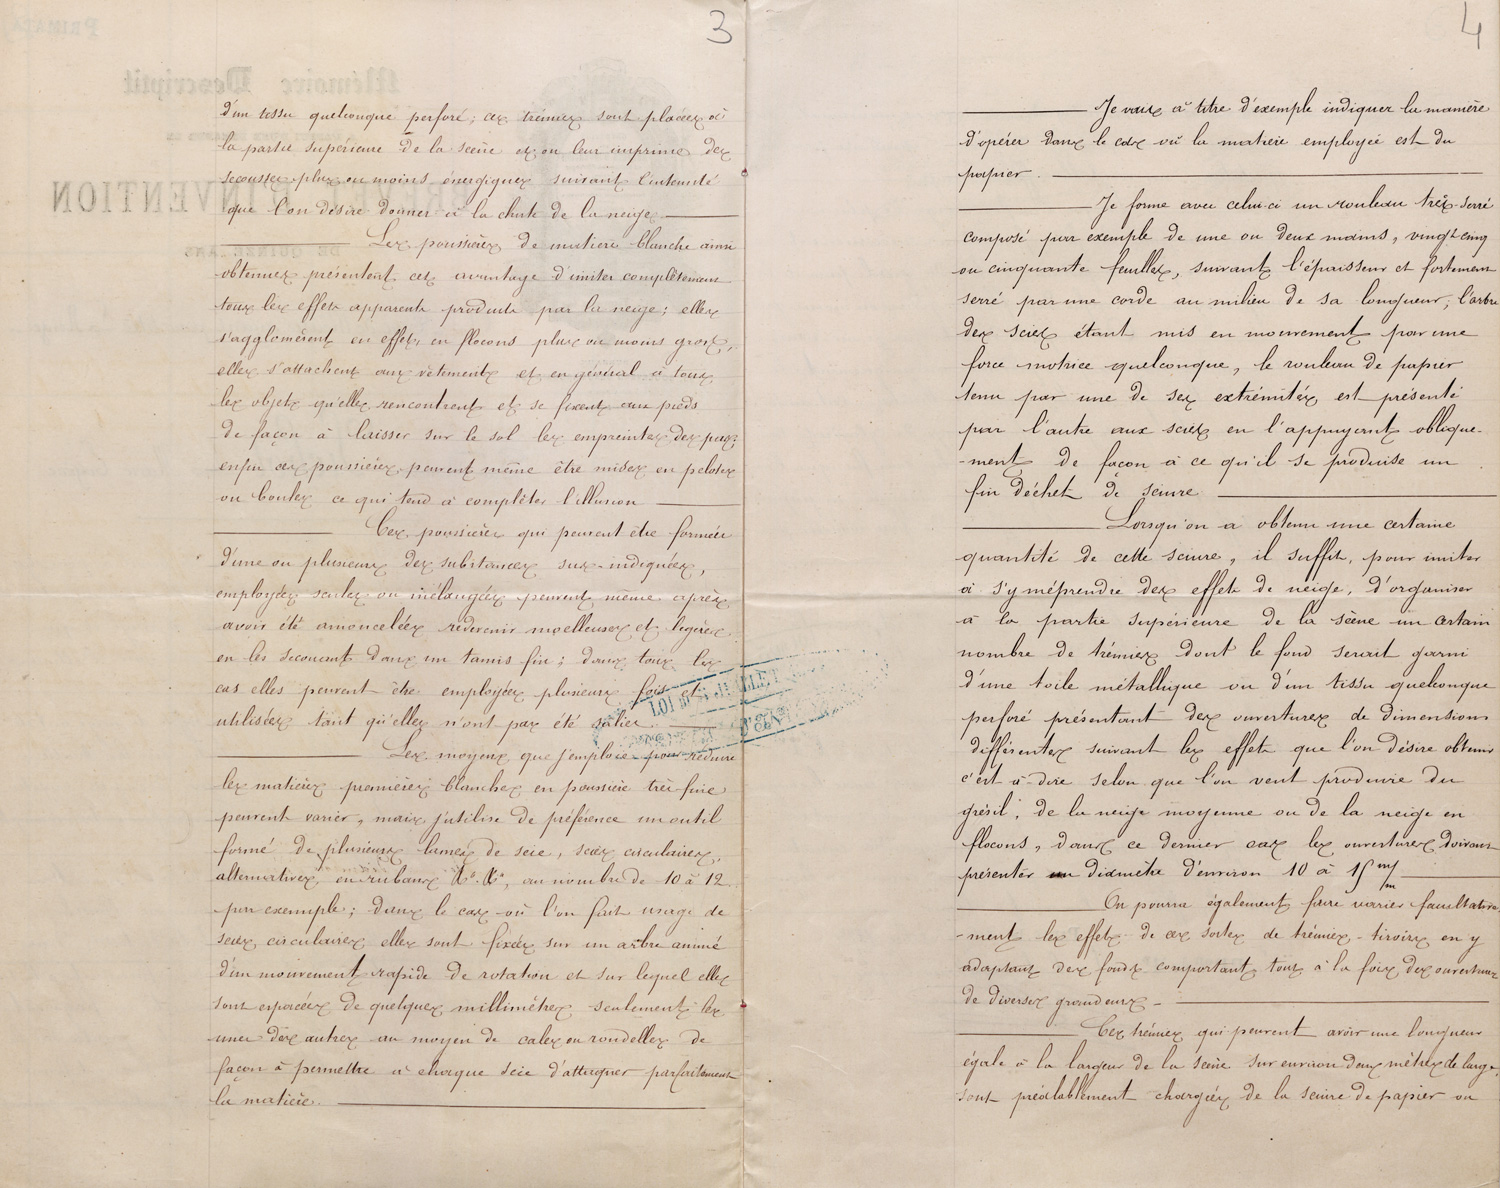 3
d'un tissu quelconque perforé; ces trémies sont placées à
la partie supérieure de la scène et on leur imprime des
secousses plus ou moins énergiques suivant l'intensité
que l'on désire donner à la chute de la neige.
Les poussières de matière blanche ainsi
obtenues présentent cet avantage d'imiter complètement
tous les effets apparents produits par la neige; elles
s'agglomèrent en effet, en flocons plus ou moins gros,
elles s'attachent aux vêtements et en général à tous
les objets qu'elles rencontrent et se fixent aux pieds
de façon à laisser sur le sol les empreintes des pas;
enfin ces poussières, peuvent même être mises en pelotes
ou boules ce qui tend à compléter l'illusion
Ces poussières qui peuvent être formées
d'une ou plusieurs des substances sus-indiquées,
employées seules ou mélangées peuvent même après
avoir été amoncelées redevenir moelleuses et légères
en les secouant dans un tamis fin; dans tous les
cas elles peuvent être employées plusieurs fois et
utilisées tant qu'elles n'ont pas été salies.
Les moyens que j'emploie pour réduire
les matières premières blanches en poussière très fine
peuvent varier, mais j'utilise de préférence un outil
formé de plusieurs lames de scie, scies circulaires,
alternatives, en rubans &a. &a, au nombre de 10 à 12
par exemple; dans le cas où l'on fait usage de
scies circulaires elles sont fixées sur un arbre animé
d'un mouvement rapide de rotation et sur lequel elles
sont espacées de quelques millimètres seulement les
unes des autres au moyen de cales ou rondelles de
façon à permettre à chaque scie d'attaquer parfaitement
la matière.
LOI DU 5 JUILLET
4
Je vais à titre d'exemple indiquer la manière
d'opérer dans le cas où la matière employée est du
papier.
Je forme avec celui-ci un rouleau très-serré
composé par exemple de une ou deux mains, vingt-cinq
ou cinquante feuilles, suivant l'épaisseur et fortement
serré par une corde au milieu de sa longueur; l'arbre
des scies étant mis en mouvement par une
force motrice quelconque, le rouleau de papier
tenu par une de ses extrémités est présenté
par l'autre aux scies en l'appuyant oblique-
-ment de façon à ce qu'il se produise un
fin déchet de sciure
Lorsqu'on a obtenu une certaine
quantité de cette sciure, il suffit, pour imiter
à s'y méprendre des effets de neige, d'organiser
à la partie supérieure de la scène un certain
nombre de trémies dont le fond serait garni
d'une toile métallique ou d'un tissu quelconque
perforé présentant des ouvertures de dimensions
différentes suivant les effets que l'on désire obtenir
c'est à dire selon que l'on veut produire du
grésil, de la neige moyenne ou de la neige en
flocons, dans ce dernier cas les ouvertures doivent
présenter un diamètre d'environ 10 à 15 m/m
On pourra également faire varier facultative-
-ment les effets de ces sortes de trémies-tiroirs en y
adaptant des fonds comportant tous à la fois des ouvertures
de diverses grandeurs -
Ces trémies qui peuvent avoir une longueur
égale à la largeur de la scène sur environ deux mètres de large,
sont préalablement chargées de la sciure de papier ou